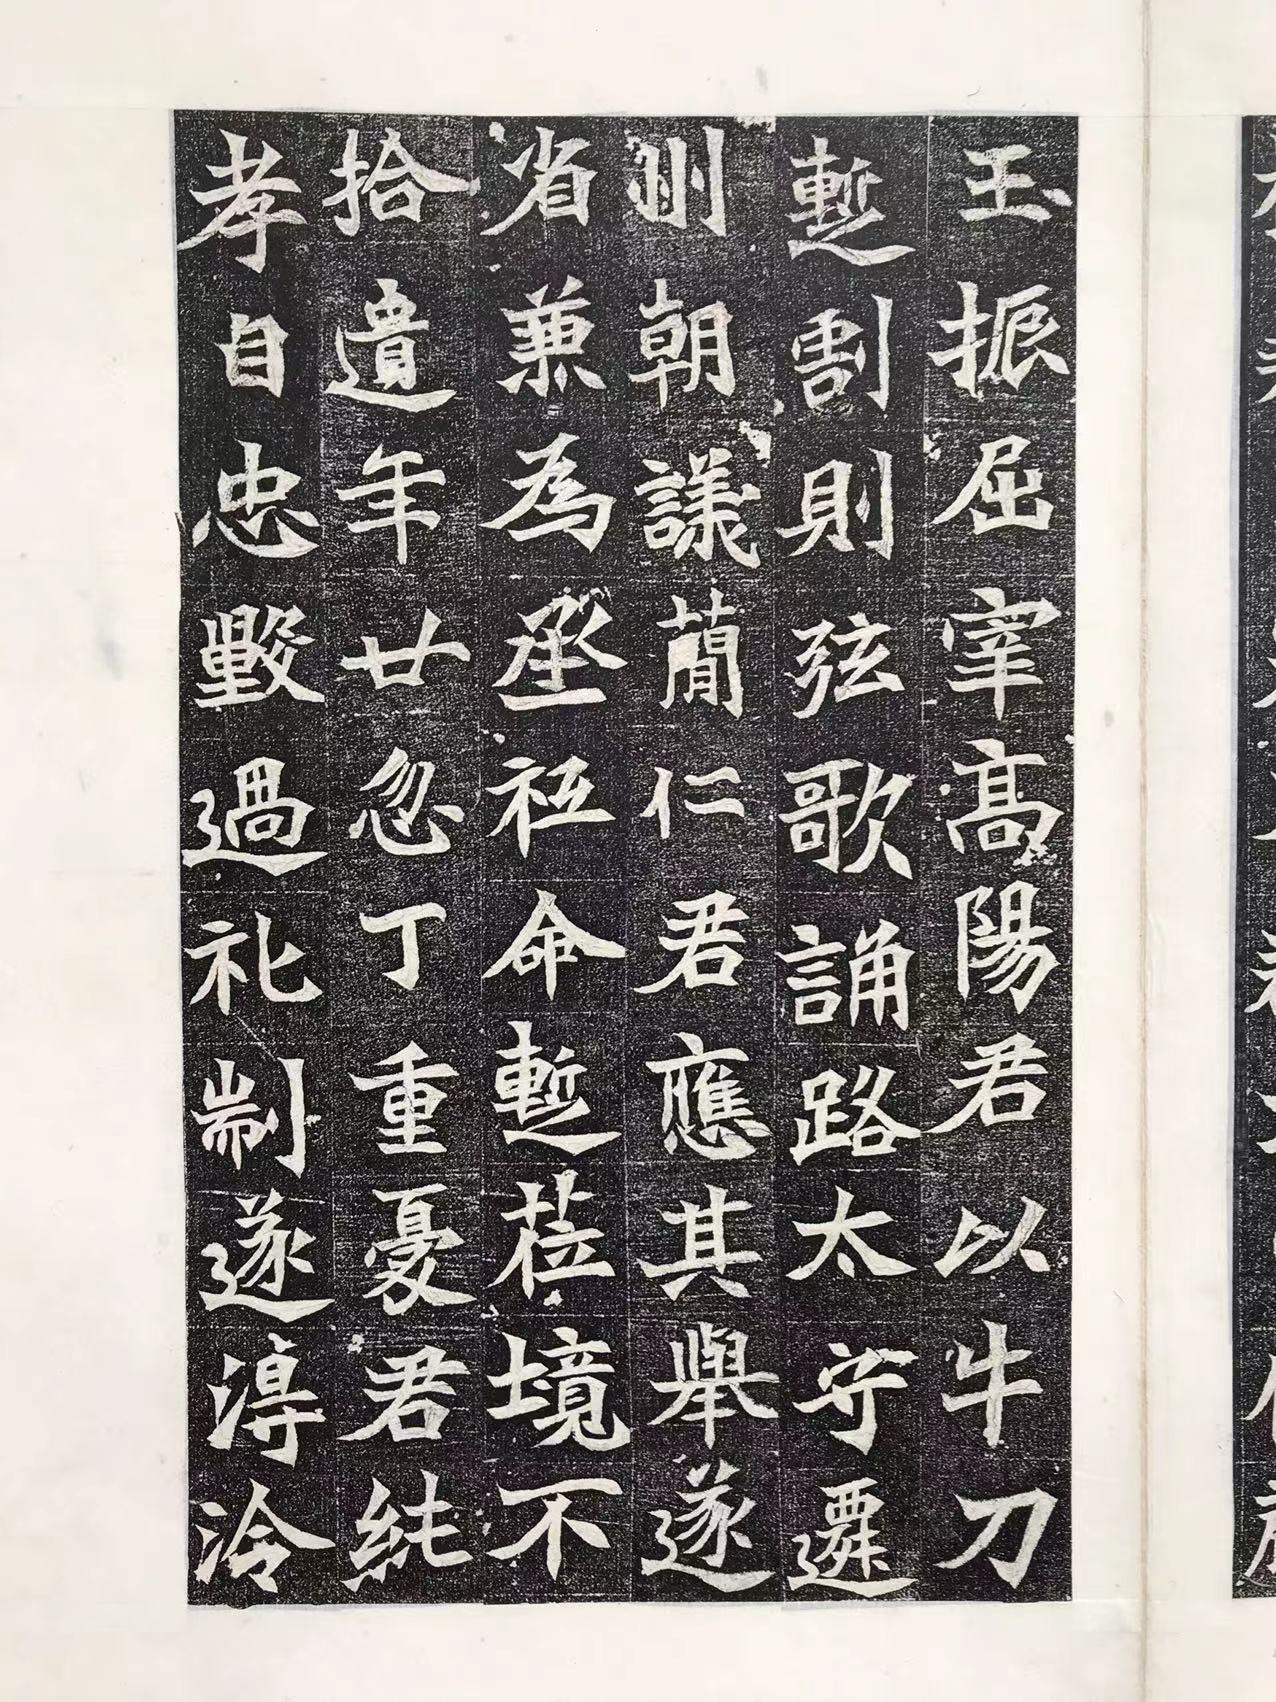 玉振屈宰高陽君以牛刀
暫割則弦歌誦路太守遷
州朝議蕳仁君應其舉遂
省兼為丞衽命暫莅境不
拾遺年廿忽丁重憂君純
孝自忠毀過礼制遂淳泠